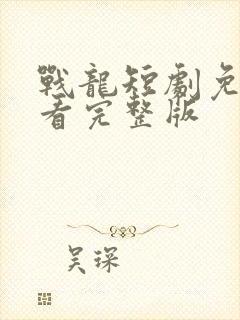 戰龍短劇免
看完整版
吴琛